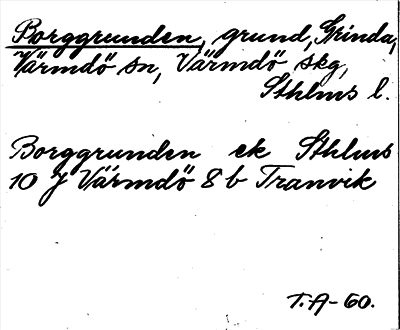 Borggrunden, grund, Grinda,
Värmdö sn, Värmdö skg,
Sthlms l.
Borggrunden ek Sthlms
10 J Värmdö 8 b Tranvik
T.A-60.